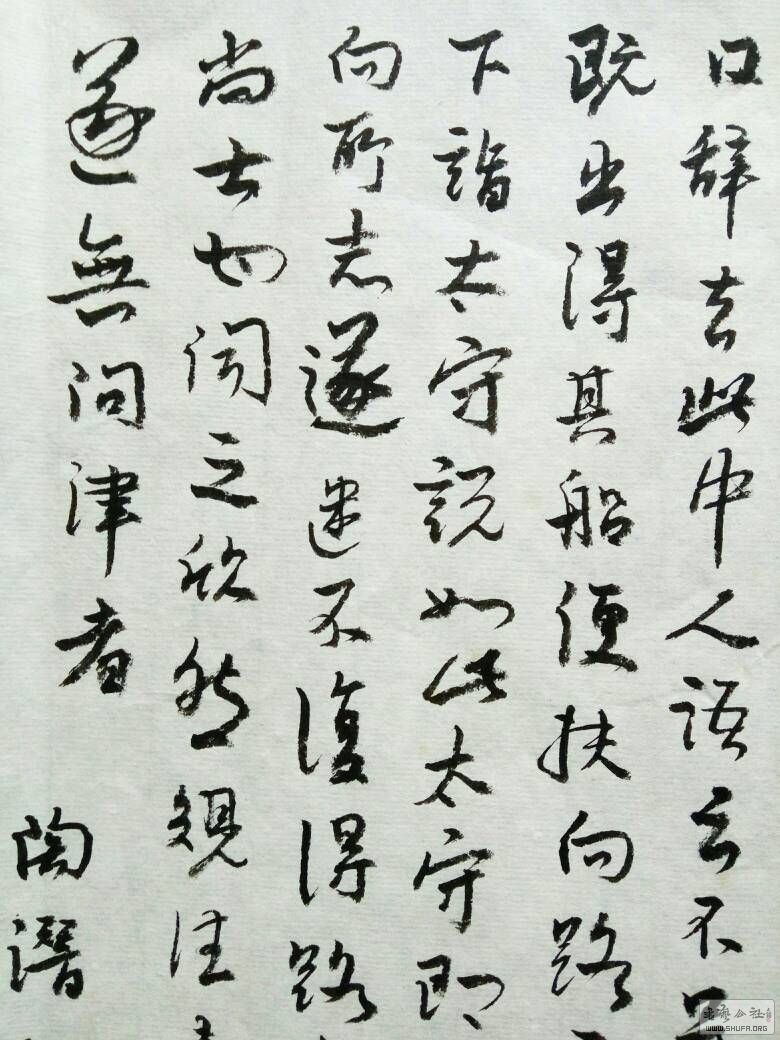 口辞去此中人語云不
既出得其船便扶向路
下詣太守説如此太守即
向所志遂迷不復得路
尚士也聞之欣然規往
遂無問津者
陶潛
SHUFA.ORG